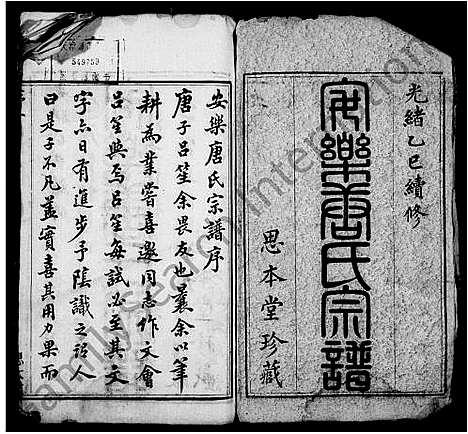 光緒乙巳續修
安樂唐氏宗譜
思本堂珍藏
安樂唐氏宗譜序
唐子呂笙余畏友也曩余以筆
耕為業嘗喜邀同志作文會
呂笙與焉呂笙每試必至其文
字亦日有進步予陰識之語人
曰是子不凡蓋實喜其用力果而